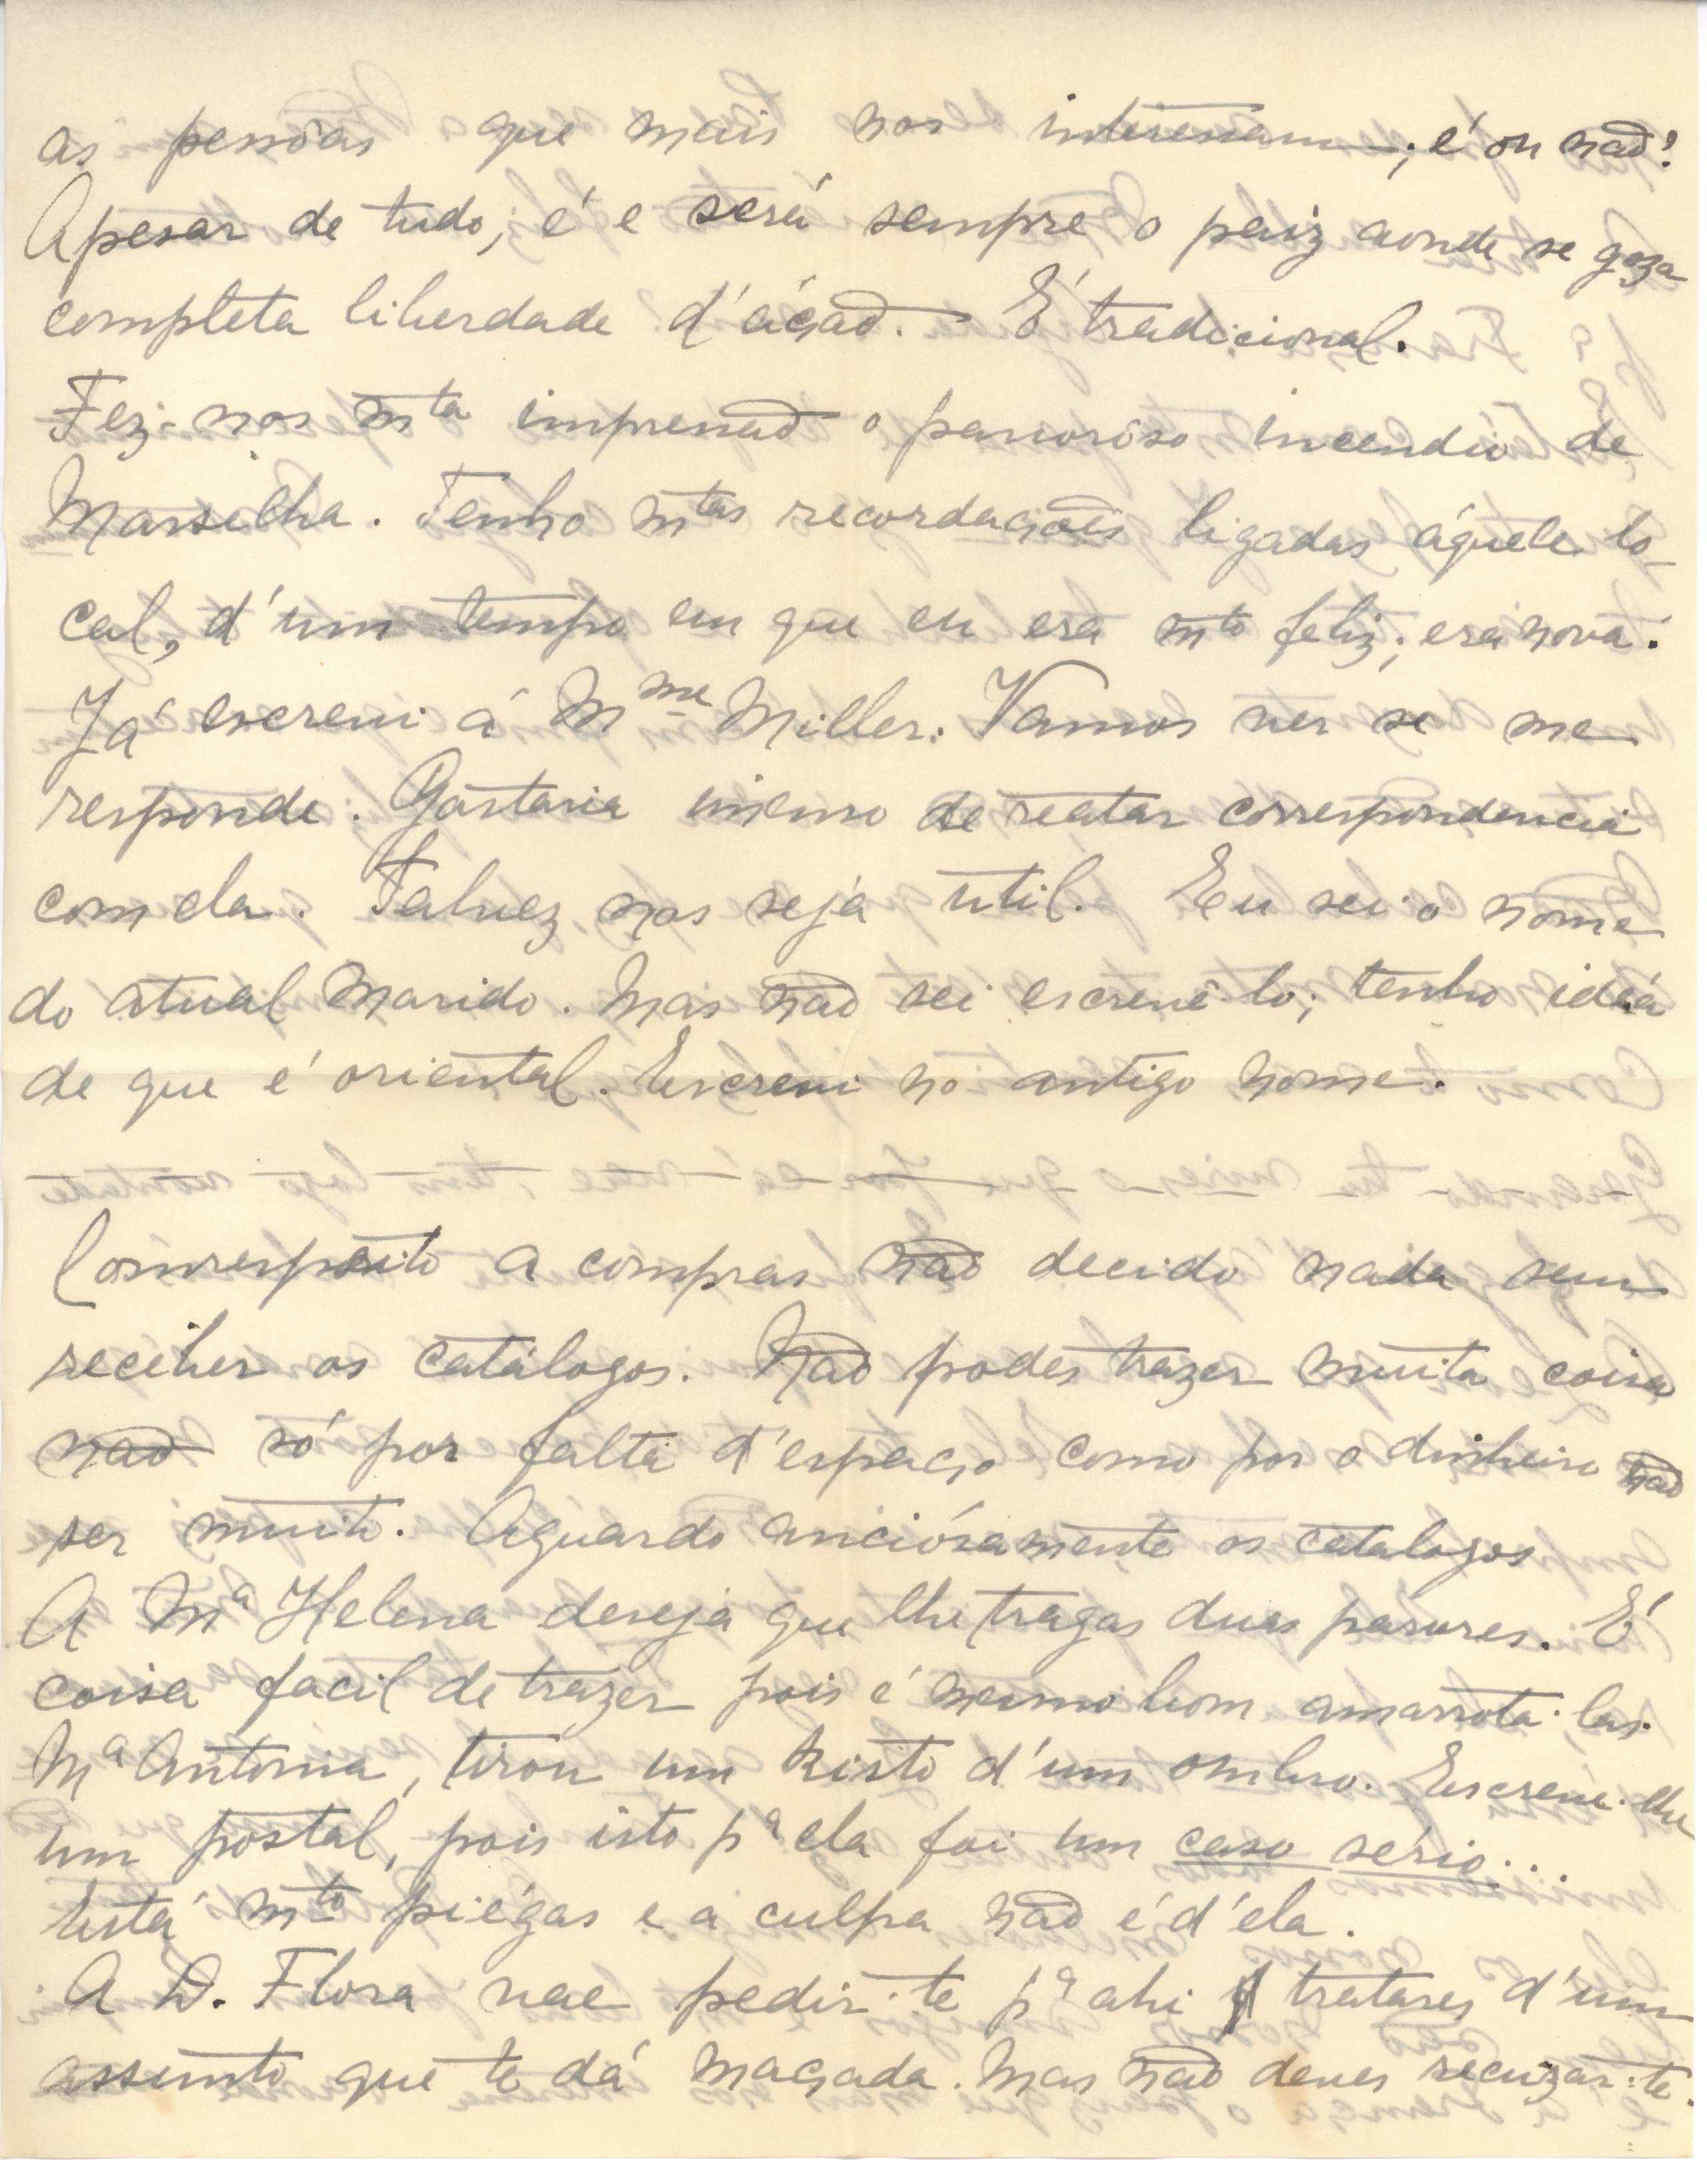 as pessôas que mais nos interessam; é ou não!
Apesar de tudo, é e será sempre o paiz aonde se goza
completa liberdade d'áção. É tradicional.
Fez-nos mta impressão o pavorôso incendio de
Marselha. Tenho mtas recordações ligadas áquele lo-
cal, d'um tempo em que eu era mto feliz; era nova!
Já escrevi á Mme Miller. Vamos ver se me
responde. Gostaria imenso de reatar correspondencia
com ela. Talvez nos seja util. Eu sei o nome
do atual marido. Mas não sei escrevê-lo; tenho ideia
de que é oriental. Escrevi no antigo nome.
Com respeito a compras não decido nada sem
receber os catálogos. Não podes trazer muita coisa
não só por falta d'espaço como por o dinheiro não
ser muito. Aguardo anciósamente os catalogos
A Mª Helena deseja que lhe tragas duas parures. É
coisa facil de trazer pois é mesmo bom amarrota-las.
Mª Antonia, tirou um kisto d'um ombro. Escreve-lhe
um postal, pois isto pª ela foi um caso sério...
Está mto piégas e a culpa não é d'éla.
A D. Flora vae pedir-te pª ahi tratares d'um
assunto que te dá maçada. Mas não deves recuzar-te.